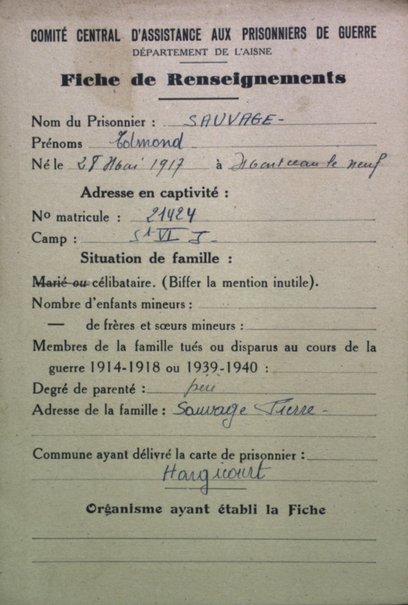 COMITÉ CENTRAL D'ASSISTANCE AUX PRISONNIERS DE GUERRE
DÉPARTEMENT DE L'AISNE
Fiche de Renseignements
Nom du Prisonnier : SAUVAGE-
Prénoms Edmond
Né le 28 Mai 1917 à Montceau le neuf
Adresse en captivité :
No matricule : 21424
Camp : St VI J
Situation de famille :
Marié ou célibataire. (Biffer la mention inutile).
Nombre d'enfants mineurs :
— de frères et sœurs mineurs :
Membres de la famille tués ou disparus au cours de la
guerre 1914-1918 ou 1939-1940 :
Degré de parenté : père
Adresse de la famille : Sauvage Pierre -
Commune ayant délivré la carte de prisonnier :
Hargicourt
Organisme ayant établi la Fiche